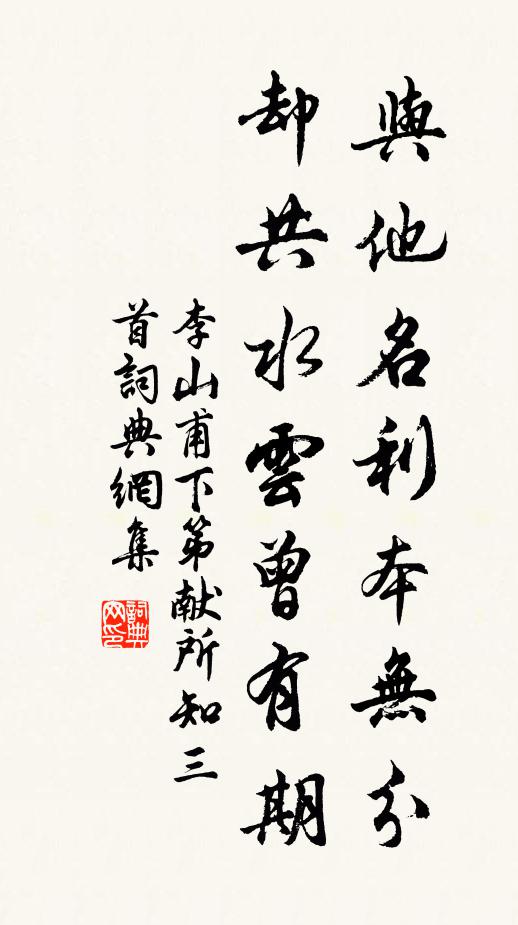 與他名利本無分
却共水雲曾有期
李山甫下第献所知三
首詞典網集
詞典
网印